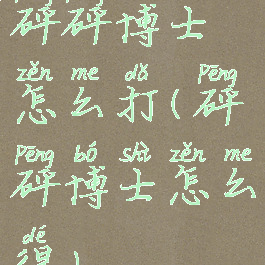 砰砰博士
zěn me dǎ Pēng
怎么打(砰
Pēng bó shì zěn me
砰博士怎么
dé
得)